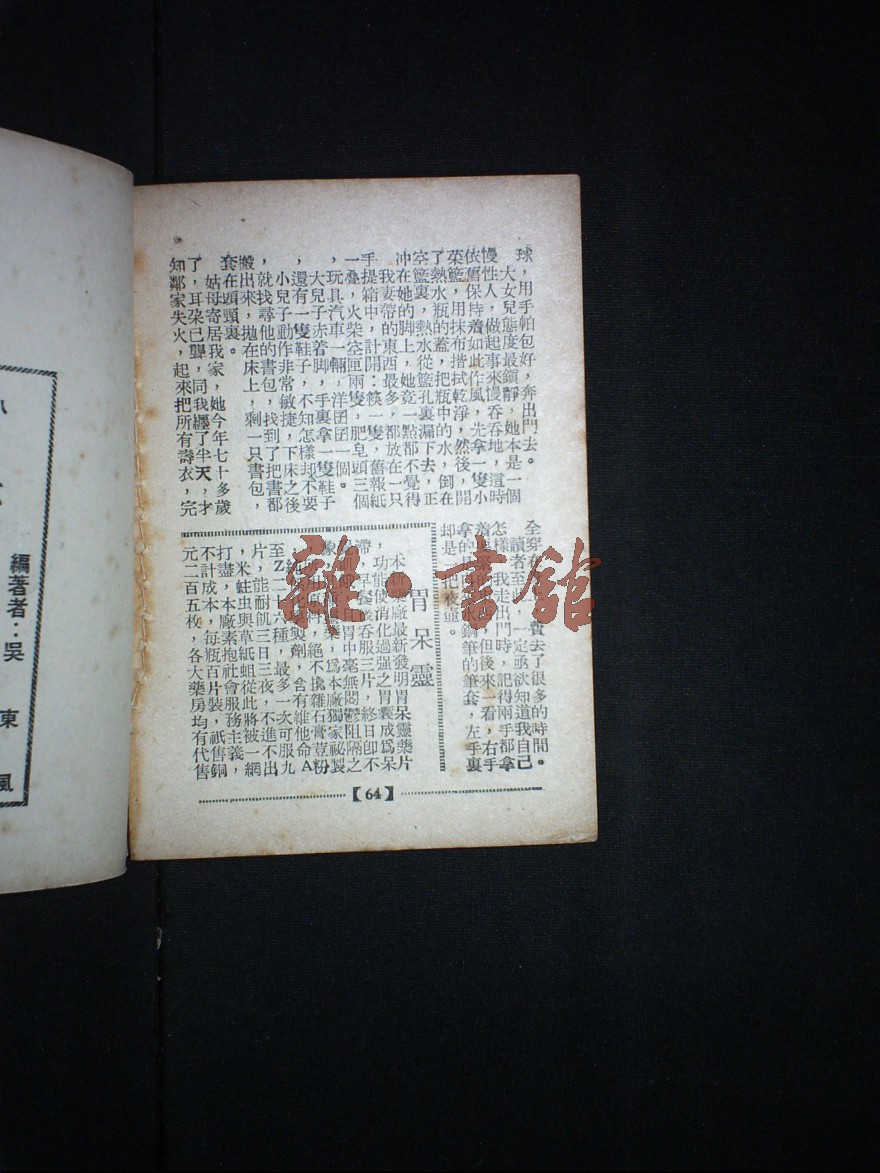 球，用手帕包好，奔出門去。
大女兒態度最鎮靜，她本是一個
慢性人，做起事來慢吞吞地，這時
依舊保持着如此作風，先拿一隻小
菜籃，用抹布揩拭乾淨，然後開
了熱水瓶的蓋，把瓶中的水，倒在
空籃裏，熱水從籃孔裏漏下去，正
冲在她的脚上，她竟一點都不覺得
我妻帶的東西最多，都放在一只
手提箱中，計開：筷一隻，舊報紙
一叠，火柴空匣兩隻，肥皂頭三個
，玩具汽車一輛，洋囝囝一個。
大兒子赤着脚，手裏拿一隻鞋子
，還有一隻鞋子，不知怎樣却不要
，小兒子動作非常敏捷，下床之後
，就找尋他的書包，找到了把書都
搬出來，抛在床上，剩一只書包，
套在頭頸裏。
姑母寄居我家，她今年七十多歲
了，耳朵已聾，同我纏了半天，才
知鄰家失火，起來把所有壽衣，完
全穿
費去了很多的時間。
讀者至此，一定亟欲知道我自己
怎樣，我走出門時，記得兩手都拿
着
，但後來一看，右手
拿的
水鋼筆的筆套，左手裏
却是一把夜壺。
胃呆靈
本
藥廠最新發明胃呆靈藥片
，功能使消化過强之胃囊成爲呆
滯，早
後吞服三片，終日卽不
胃中毫無悶鬱阻隔之
象
藥，爲本廠獨家祕製
，絕不攙雜石膏荳粉
製劑，含有維他命A
至Z二十六種，最多一次可服九
片，能耐飢三日三夜，不進不出
，米蛀虫與草紙蛆從此將被一網
打盡，本廠素抱社會服務主義，
不計成本，每瓶百片裝，祇售銅
元二百五枚，各大藥房均有代售
【64】
編著者：吳
東
風
雜·書館